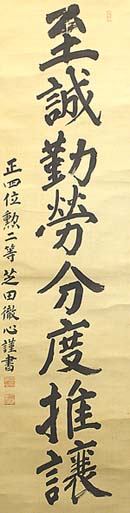 至誠勤勞分度推讓
正四位勲二等芝田徹心謹書